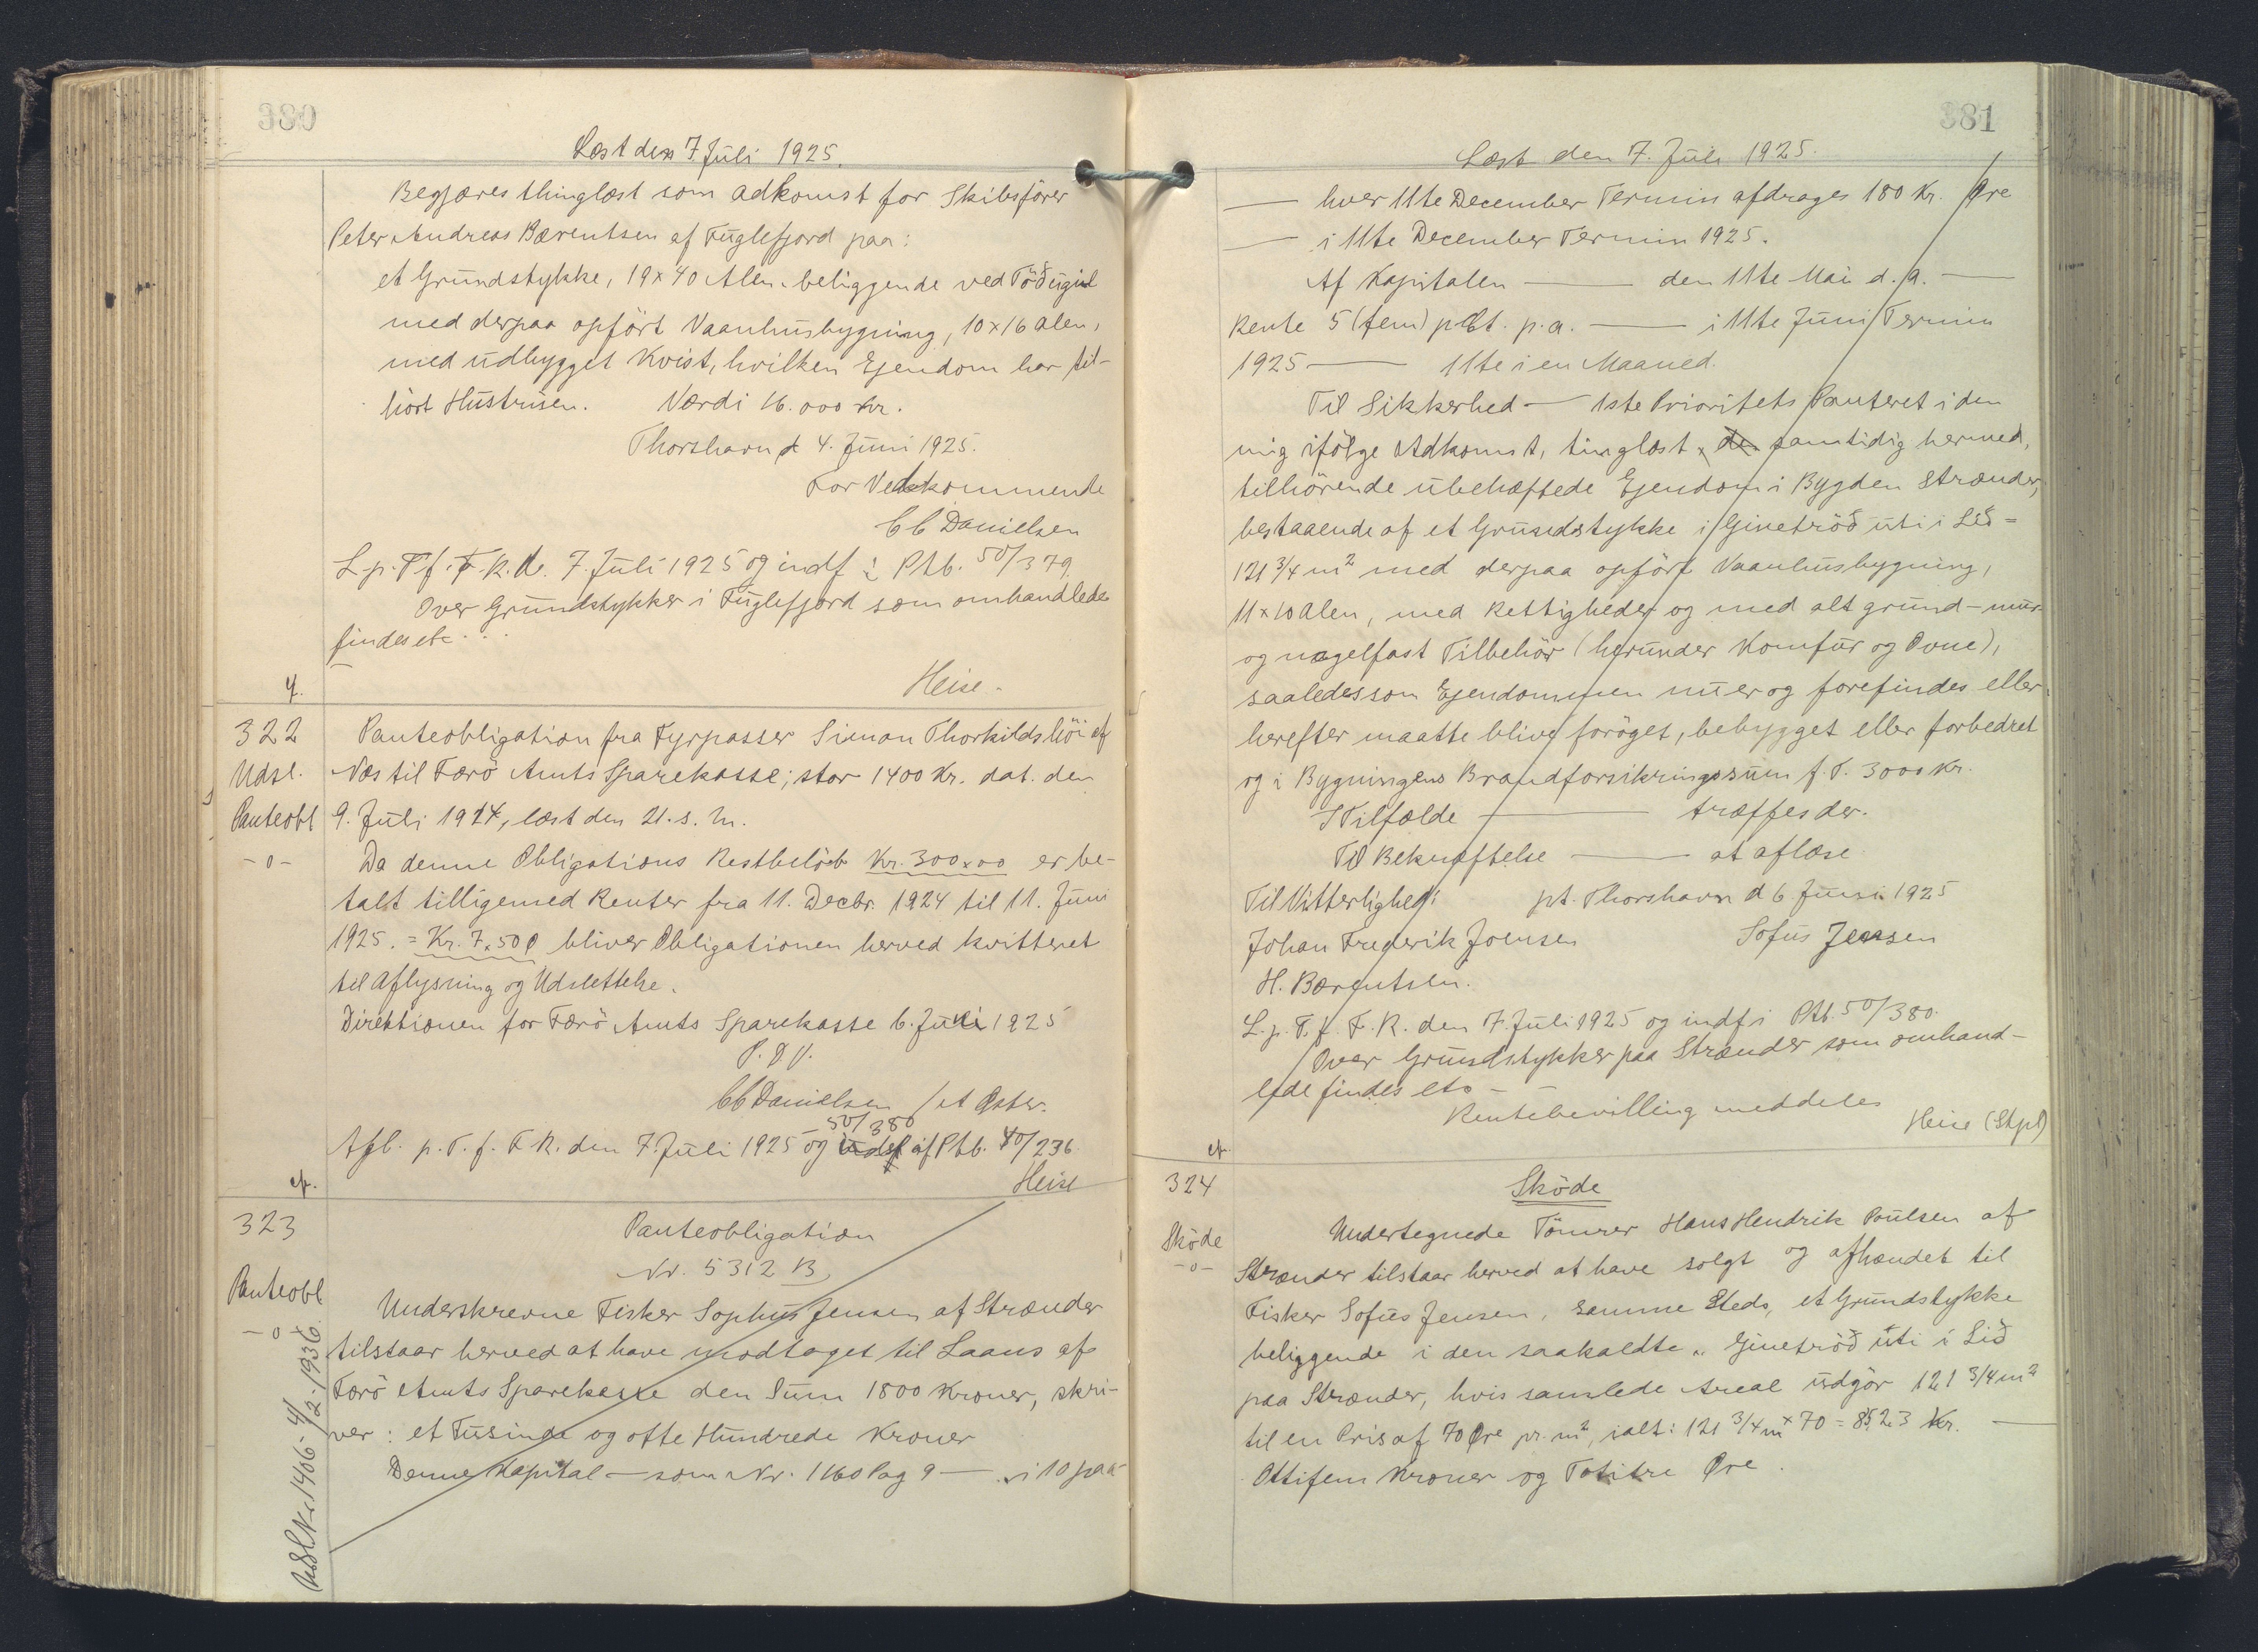 380
Læst den 7 Juli 1925.
Begjæres thinglæst som Adkomst for Skibsfører
Peter Andreas Bærentsen af Fuglefjord paa:
et Grundstykke, 19 x 40 Alen beliggende ved Töðugil
med derpaa opført Vaanhusbygning, 10 x 16 Alen,
med udbygget Kvist, hvilken Ejendom har til-
hört Hustruen. Værdi 16.000 Kr.
Thorshavn d 4. Juni 1925.
For Vedkommende
CC Danielsen
L. p. T. f. F. R. d. 7. Juli 1925 og indf i Ptb. 50/379
Over Grundstykker i Fuglefjord som omhandlede
findes etc...
Heise.
cf.
322
Udsl.
Panteobl
-o-
Panteobligation fra Fyrpasser Simon Thorkildshöi af
Næs til Færö Amts Sparekasse, stor 1400 Kr. dat. den
9. Juli 1914, læst den 21. s. M.
Da denne Obligations Restbelöb Kr. 300x00 er be-
talt tilligemed Renter fra 11. Decbr. 1924 til 11. Juni
1925. = Kr. 7,50 bliver Obligationen herved kvitteret
til Aflysning og Udslettelse.
Direktionen for Færö Amts Sparekasse 6. Juli 1925
P. D V.
CC Danielsen / et Øster.
50/380
Afl. p. T. f. F R. den 7. Juli 1925 og udsl af Ptb. 40/236
Heise
cf.
323
Panteobl
-o-
Udsl Nr 1466-4/2-1936.
Panteobligation
Nr. 5312 B
Underskrevne Fisker Sophus Jensen af Strænder
tilstaar herved at have modtaget til Laans af
Færö Amts Sparekasse den Sum 1800 Kroner, skri-
ver: et Tusinde og otte Hundrede Kroner
Denne Kapital — som Nr. 1160 Pag 9 — i 10 paa
381
Læst den 7. Juli 1925.
— hver 11te December Termin afdrages 180 Kr. Øre
— i 11te December Termin 1925.
Af Kapitalen — den 11te Mai d. A. —
Rente 5 (fem) pCt. p. a. — i 11te Juni Termin
1925 — 11te i en Maaned.
Til Sikkerhed — 1ste Prioritets Panteret i den
mig ifölge Adkomst, tinglæst de samtidig hermed,
tilhörende ubehæftede Ejendom i Bygden Strænder,
bestaaende af et Grundstykke i Ginetröð uti i Lið =
121 3/4 m2 med derpaa opfört Vaanhusbygning,
11 x 10 Alen, med Rettigheder og med alt grund- mur-
og nagelfast Tilbehör (herunder Komfur og Ovne),
saaledes som Ejendommen nu er og forefindes eller
herefter maatte blive foröget, bebygget eller forbedret
og i Bygningens Brandforsikringssum f. T. 3000 Kr.
I Tilfælde — træffes der.
Til Bekræftelse — at aflæse
Til Vitterlighed: pt. Thorshavn d 6 Juni 1925
Johan Frederik Joensen Sofus Jensen
H. Bærentsen.
L. p. T. f. F. R. den 7. Juli 1925 og indf i Ptb. 50/380.
Over Grundstykker paa Strænder som omhand-
lede findes etc -
Rentebevilling meddeles
Heise (Stpl)
cf.
324
Sköde
-o-
Sköde
Undertegnede Tömrer Hans Hendrik Poulsen af
Strænder tilstaar herved at have solgt og afhændet til
Fisker Sofus Jensen, samme Steds, et Grundstykke
beliggende i den saakaldte „Ginetröð úti í Lið
paa Strænder, hvis samlede Areal udgör 121 3/4 m2
til en Pris af 70 Øre pr. m2, ialt: 121 3/4 m x 70 = 85,23 Kr. —
Ottifem Kroner og Totitre Øre.